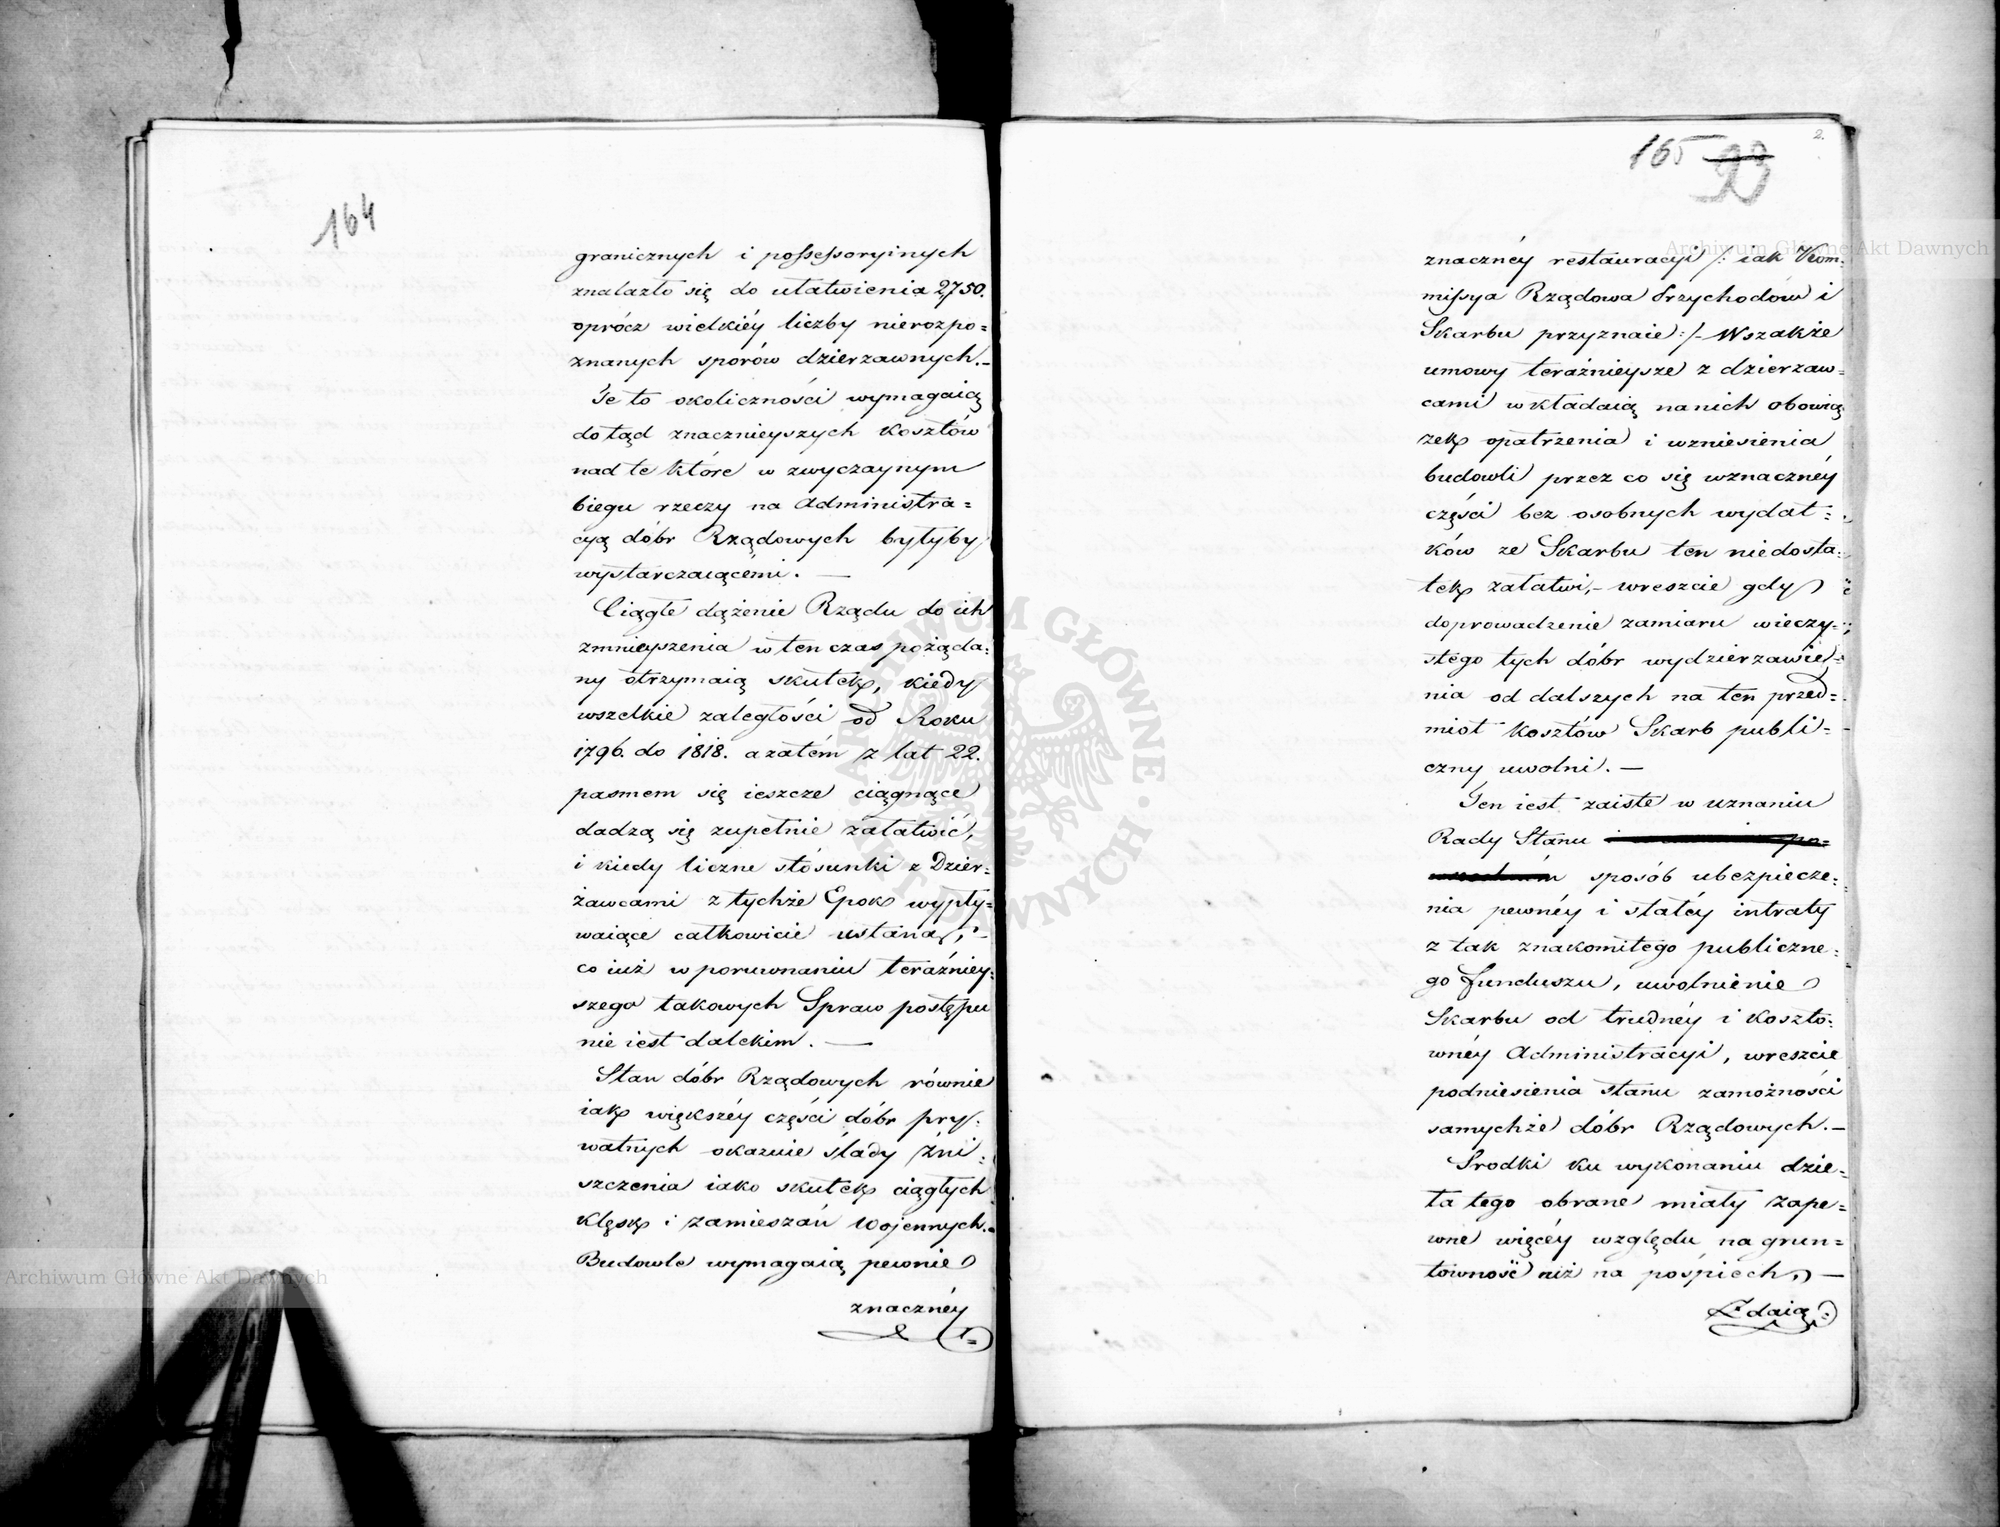 164
granicznych i possessoryinych
znalazło się do ułatwienia 2,750.
oprócz wielkiéy liczby nierozpo=
znanych sporów dzierzawnych.–
Te to okoliczności wymagaią
dotąd znacznieyszych kosztów
nad te które w zwyczaynym
biegu rzeczy na Administra=
cyą dóbr Rządowych byłyby
wystarczaiącémi. —
Ciągłe dążenie Rządu do ich
zmnieyszenia wten czas pożąda=
ny otrzymaią skutek, kiedy
wszelkie zaległości od Roku
1796. do 1818. a zatém z lat 22.
pasmem się ieszcze ciągnące
dadzą się zupełnie załatwić,
i kiedy liczne stosunki z Dzier=
żawcami z tychże Epok wypły=
waiące całkowicie ustaną, –
co iuż w porównaniu teraźniey=
szego takowych Spraw postępu
nie iest dalekim. —
Stan dóbr Rządowych równie
iak większéy części dóbr pry=
watnych okazuie ślady zni=
szczenia iako skutek ciągłych
klęsk i zamieszań wojennych.–
Budowle wymagaią pewnie
znacznéy
2.
165
93
znacznéy restauracyi /: iak Kom=
missya Rządowa Przychodów i
Skarbu przyznaie :/– Wszakże
umowy teraźnieysze z dzierzaw=
cami wkładaią na nich obowią
zek opatrzenia i wzniesienia
budowli przez co się wznacznéy
części bez osobnych wydat=
ków ze Skarbu ten niedosta=
tek załatwi,– wreszcie gdy
doprowadzenie zamiaru wieczy=
stego tych dóbr wydzierzawie=
nia od dalszych na ten przed=
miot kosztów Skarb publi=
czny uwolni. —
Ten iest zaiste w uznaniu
Rady Stanu
sposób ubezpiecze=
nia pewnéy i stałéy intraty
z tak znakomitego publiczne=
go funduszu, uwolnienie
Skarbu od trudnéy i koszto=
wnéy Administracyi, wreszcie
podniesienia stanu zamożności
samychże dóbr Rządowych.–
Srodki ku wykonaniu dzie=
ła tego obrane miały zape=
wne więcéy względu na grun=
towność niż na pośpiech, —
Zdaią
Archiwum Główne Akt Dawnych
Archiwum Główne Akt Dawnych
ARCHIWUM GŁÓWNE AKT DAWNYCH